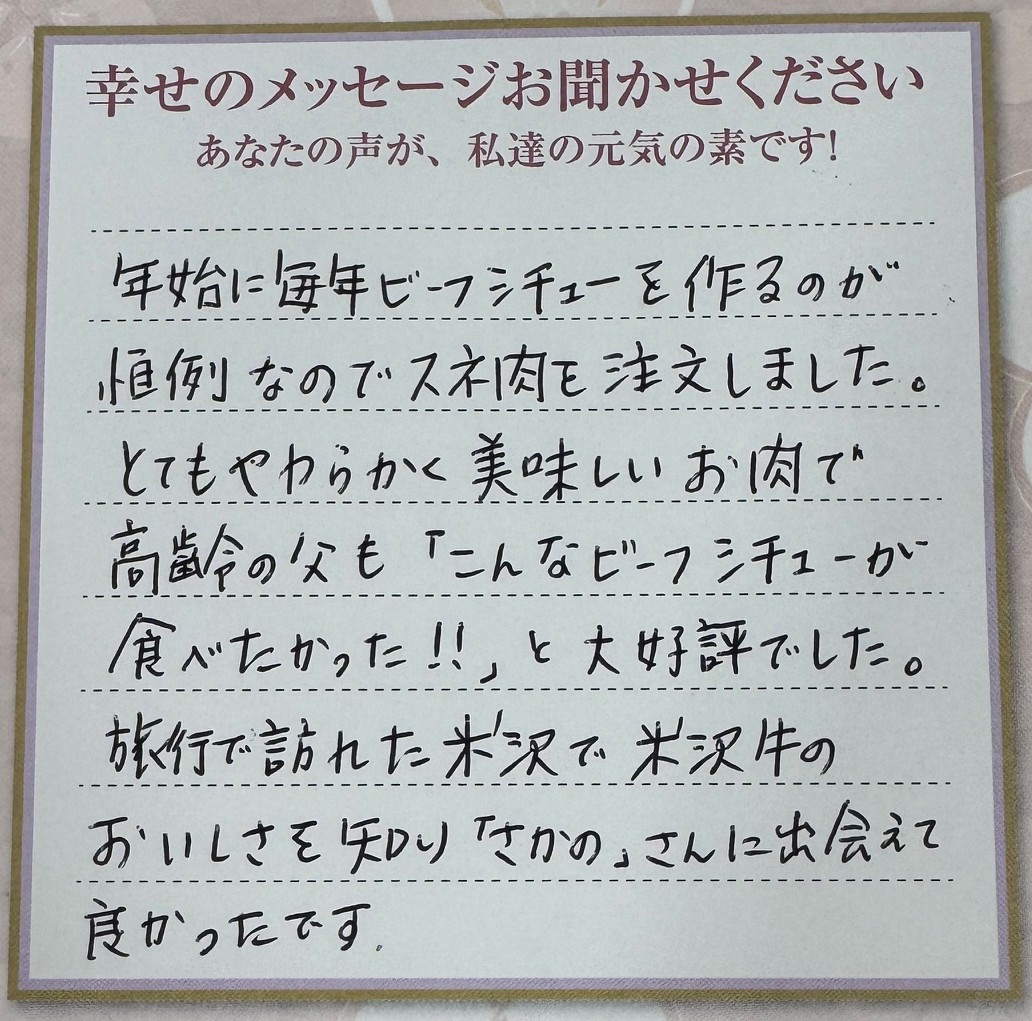 幸せのメッセージお聞かせください
あなたの声が、私達の元気の素です!
年始に毎年ビーフシチューを作るのが
恒例なのでスネ肉を注文しました。
とてもやわらかく美味しいお肉で
高齢の父も「こんなビーフシチューが
食べたかった!!」と大好評でした。
旅行で訪れた米沢で米沢牛の
おいしさを知り「さかの」さんに出会えて
良かったです.